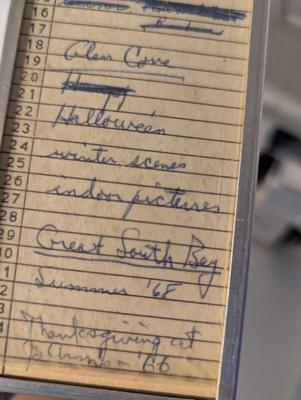 16
17
18
19 Glen Cove
20
21
22 Halloween
23
24 winter scenes
25
26 indoor pictures
27
28
29 Great South Bay
0
1 Summer '68
2
3 Thanksgiving at
'66